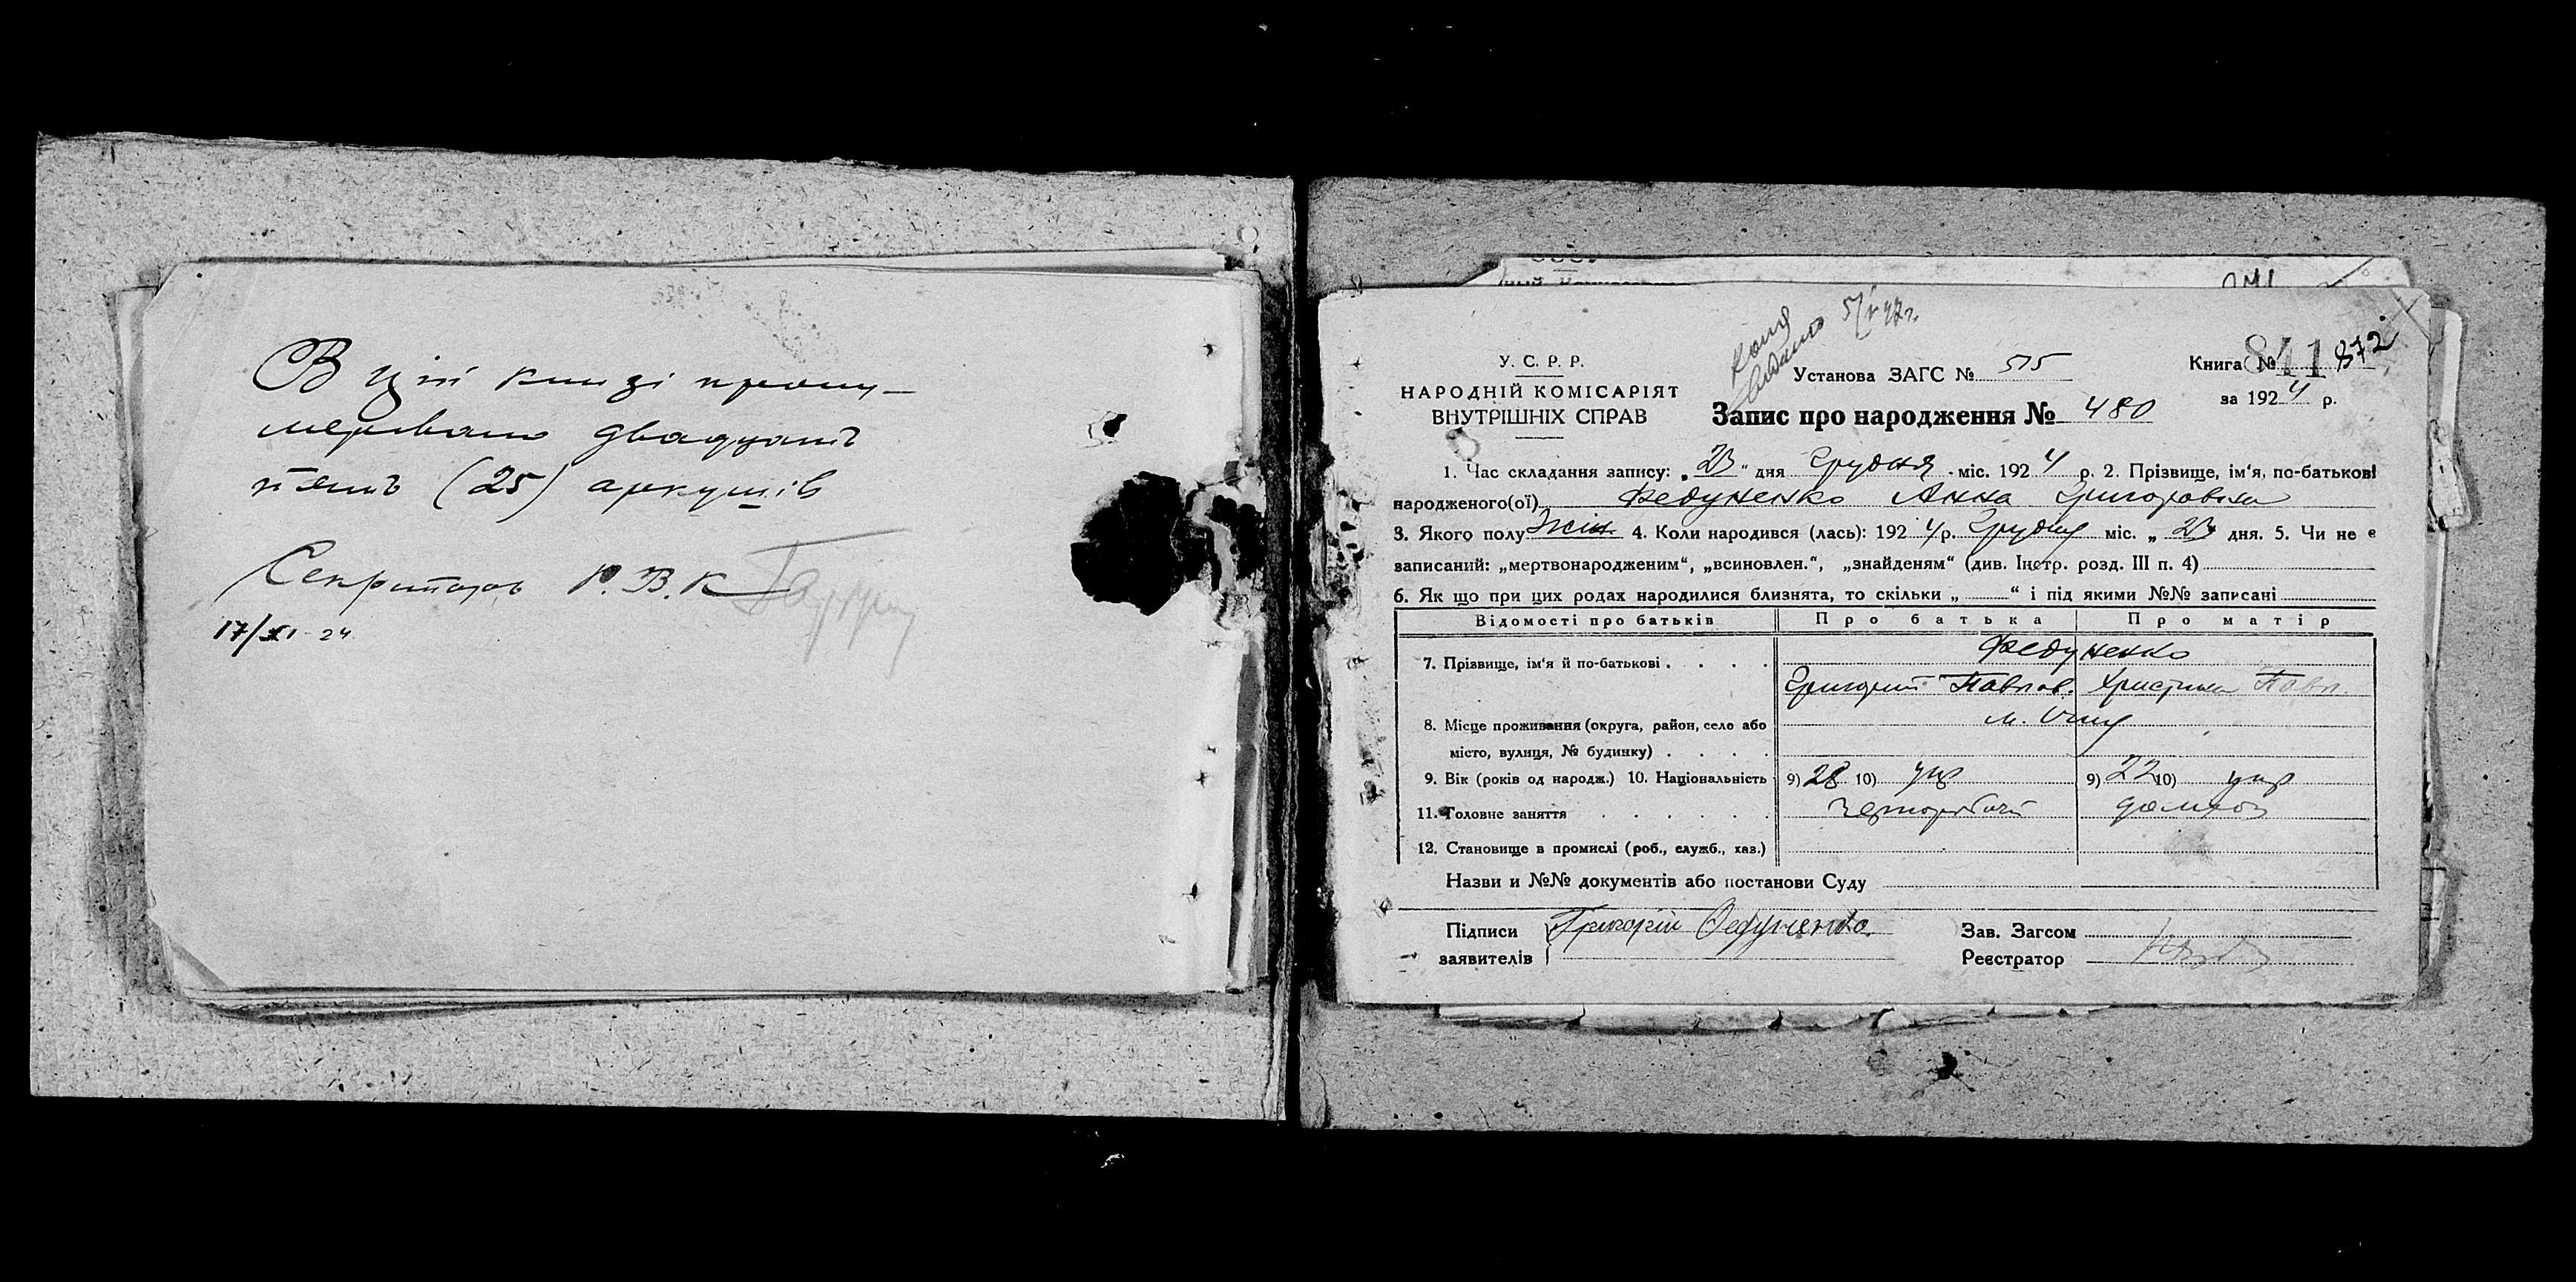 В цій книзі прону-
меровано двадцать
пʼять (25) аркушів
Секритарь Р.В.К
17/XI 24
Копія
видано 5/V 47г.
У.С.Р.Р.
НАРОДНІЙ КОМІСАРІЯТ
ВНУТРІШНІХ СПРАВ
Установа ЗАГС № 515
Книга № 841 872
за 1924 р.
Запис про народження № 480
1. Час складання запису: „23“ дня Грудня міс. 1924 р. 2. Прізвище, ім'я, по-батькові
народженого(ої) Федуненко Анна Григоровна
3. Якого полу Жін. 4. Коли народився (лась): 1924 р. Грудня міс. „23 дня. 5. Чи не є
записаний: „мертвонародженим“, „всиновлен.“, „знайденям“ (див. Інстр. розд. III п. 4)
6. Як що при цих родах народилися близнята, то скільки „ “ і під якими №№ записані
Відомості про батьків Про батька Про матір
7. Прізвище, ім'я й по-батькові Федуненко
Григорий Павлов. Христина Павл.
8. Місце проживання (округа, район, село або
м.
місто, вулиця, № будинку)
9. Вік (років од народж.) 10. Національність 9) 28 10) укр 9) 22 10) укр
11. Головне заняття чернороб
12. Становище в промислі (роб., служб., хаз.)
Назви и №№ документів або постанови Суду
Підписи Григорій Федуненко. Зав. Загсом
заявителів Реєстратор